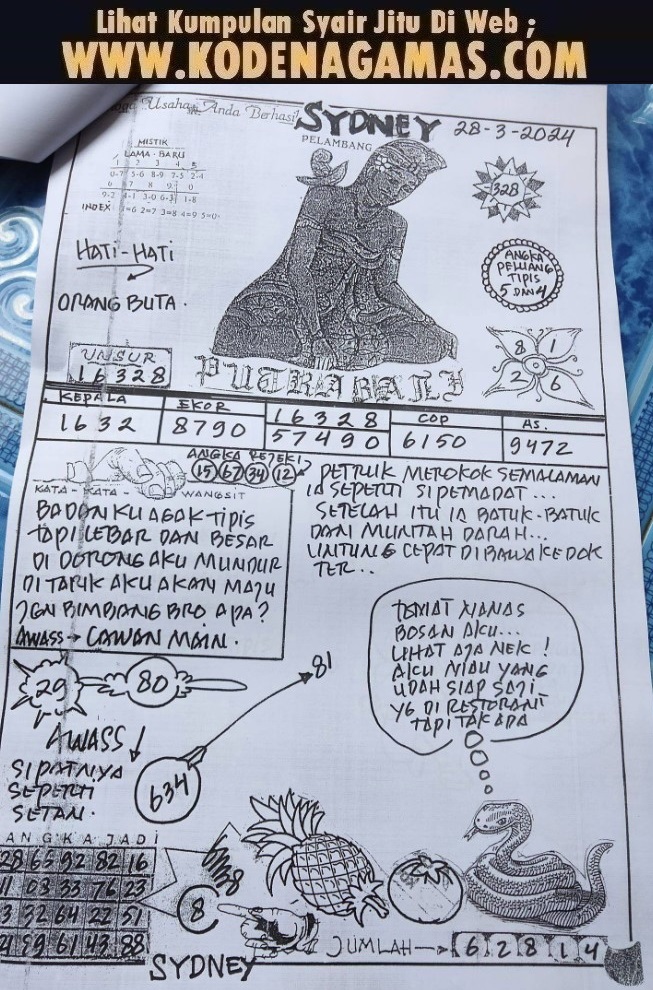 Lihat Kumpulan Syair Jitu Di Web ;
WWW.KODENAGAMAS.COM
Usaha Anda Berhasil
SYDNEY 28-3-2024
PELAMBANG
MISTIK
LAMA - BARU
1 2 3 4 5
0-7 5-6 8-9 7-5 2-4
6 7 8 9 0
9-2 4-1 3-0 6-3 1-8
INDEX 1=6 2=7 3=8 4=9 5=0
328
HATI-HATI
ORANG BUTA.
ANGKA
PELUANG
TIPIS
5 DAN 4
8 1
2 6
UNSUR
16328
PUTRA BALI
KEPALA
1632
EKOR
8790
16328
57490
COP
6150
AS.
9472
ANGKA REJEKI
15 67 34 12
KATA - KATA - WANGSIT
BADANKU AGAK TIPIS
TAPI LEBAR DAN BESAR
DI DORONG AKU MUNDUR
DI TARIK AKU AKAN MAJU
JGN BIMBANG BRO APA?
AWASS → CAWAN MAIN.
PETRUK MEROKOK SEMALAMAN
IA SEPERTI SIPEMADAT...
SETELAH ITU IA BATUK-BATUK
DAN MUNTAH DARAH...
UNTUNG CEPAT DIBAWA KE DOK
TER..
TOMAT NANAS
BOSAN AKU...
LIHAT AJA NEK!
AKU MAU YANG
UDAH SIAP SAJI
YG DI RESTORANT
TAPI TAK ADA
20 80
81
634
AWASS
SIPATNYA
SEPERTI
SETAN.
ANGKA JADI
28 65 92 82 16
11 08 33 76 23
3 32 64 22 51
21 99 61 43 88
8
JUMLAH → 6 2 8 1 4
SYDNEY